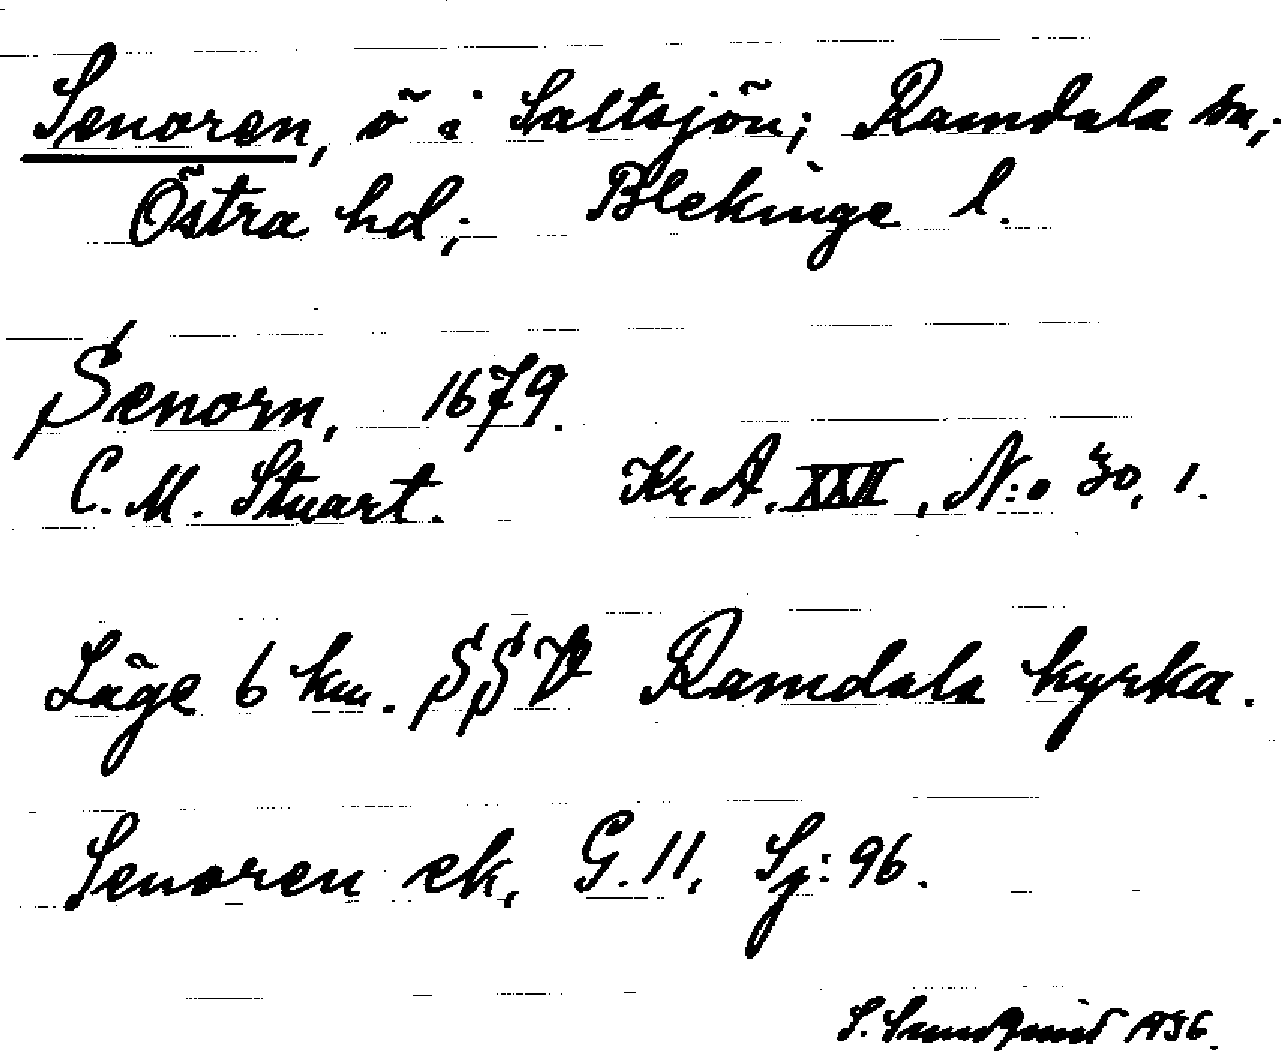 Senoren, ö i Saltsjön; Ramdala sn;
Östra hd; Blekinge l.
Senorn, 1679.
C. M. Stuart. Kr A. XXII, N:o 30, 1.
Läge 6 km. SSV Ramdala kyrka.
Senoren ek, G. 11, Sj: 96.
S. 1936.